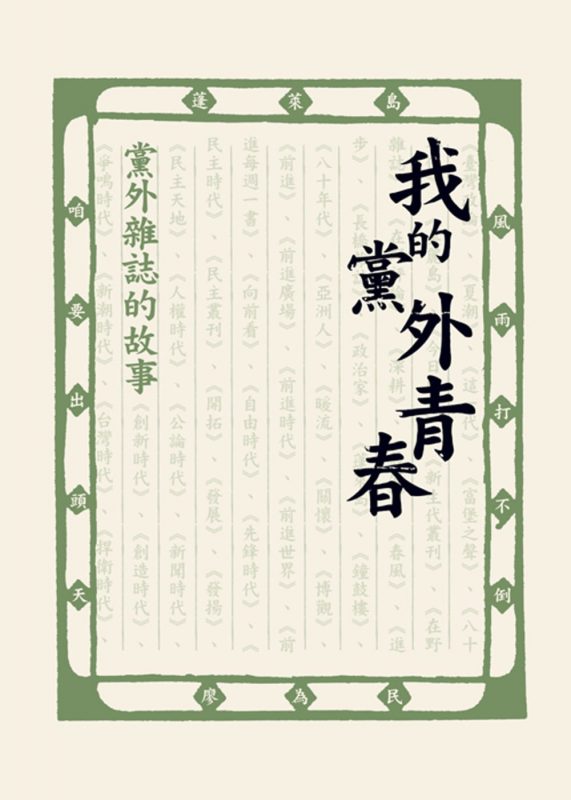 蓬萊島
我的黨外青春
黨外雜誌的故事
風雨打不倒
咱要出頭天
廖為民
《臺灣
《夏潮》、《這
代》、《富堡之聲》、《八十
島》
今日
《新生代叢刊》、《在野
雜誌
《在
《深耕》
《春風》、《進
步》、《長橋
《政治家》、
《鐘鼓樓
《八十年代》、《亞洲人》、《暖流》、《關懷》、《博觀》、
《前進》、《前進廣場》、《前進時代》、《前進世界》、《前
進每週一書》、《向前看》、《自由時代》、《先鋒時代》、
民主時代》、《民主叢刊》、《開拓》、《發展》、《發揚》、
《民主天地》、《人權時代》、《公論時代》、《新聞時代》、
《創新時代》、《創造時代》、
《爭鳴時代》、《新潮時代》、《台灣時代》、《捍衛時代》、